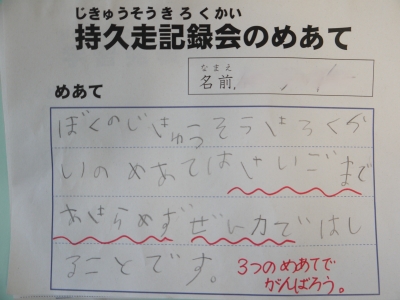 じきゅうそうきろくかい
持久走記録会のめあて
なまえ
名前
めあて
ぼくのじきゅうそうきろくか
いのめあてはさいごまで
あきらめずぜん力ではし
ることです。
3つのめあてで
がんばろう。